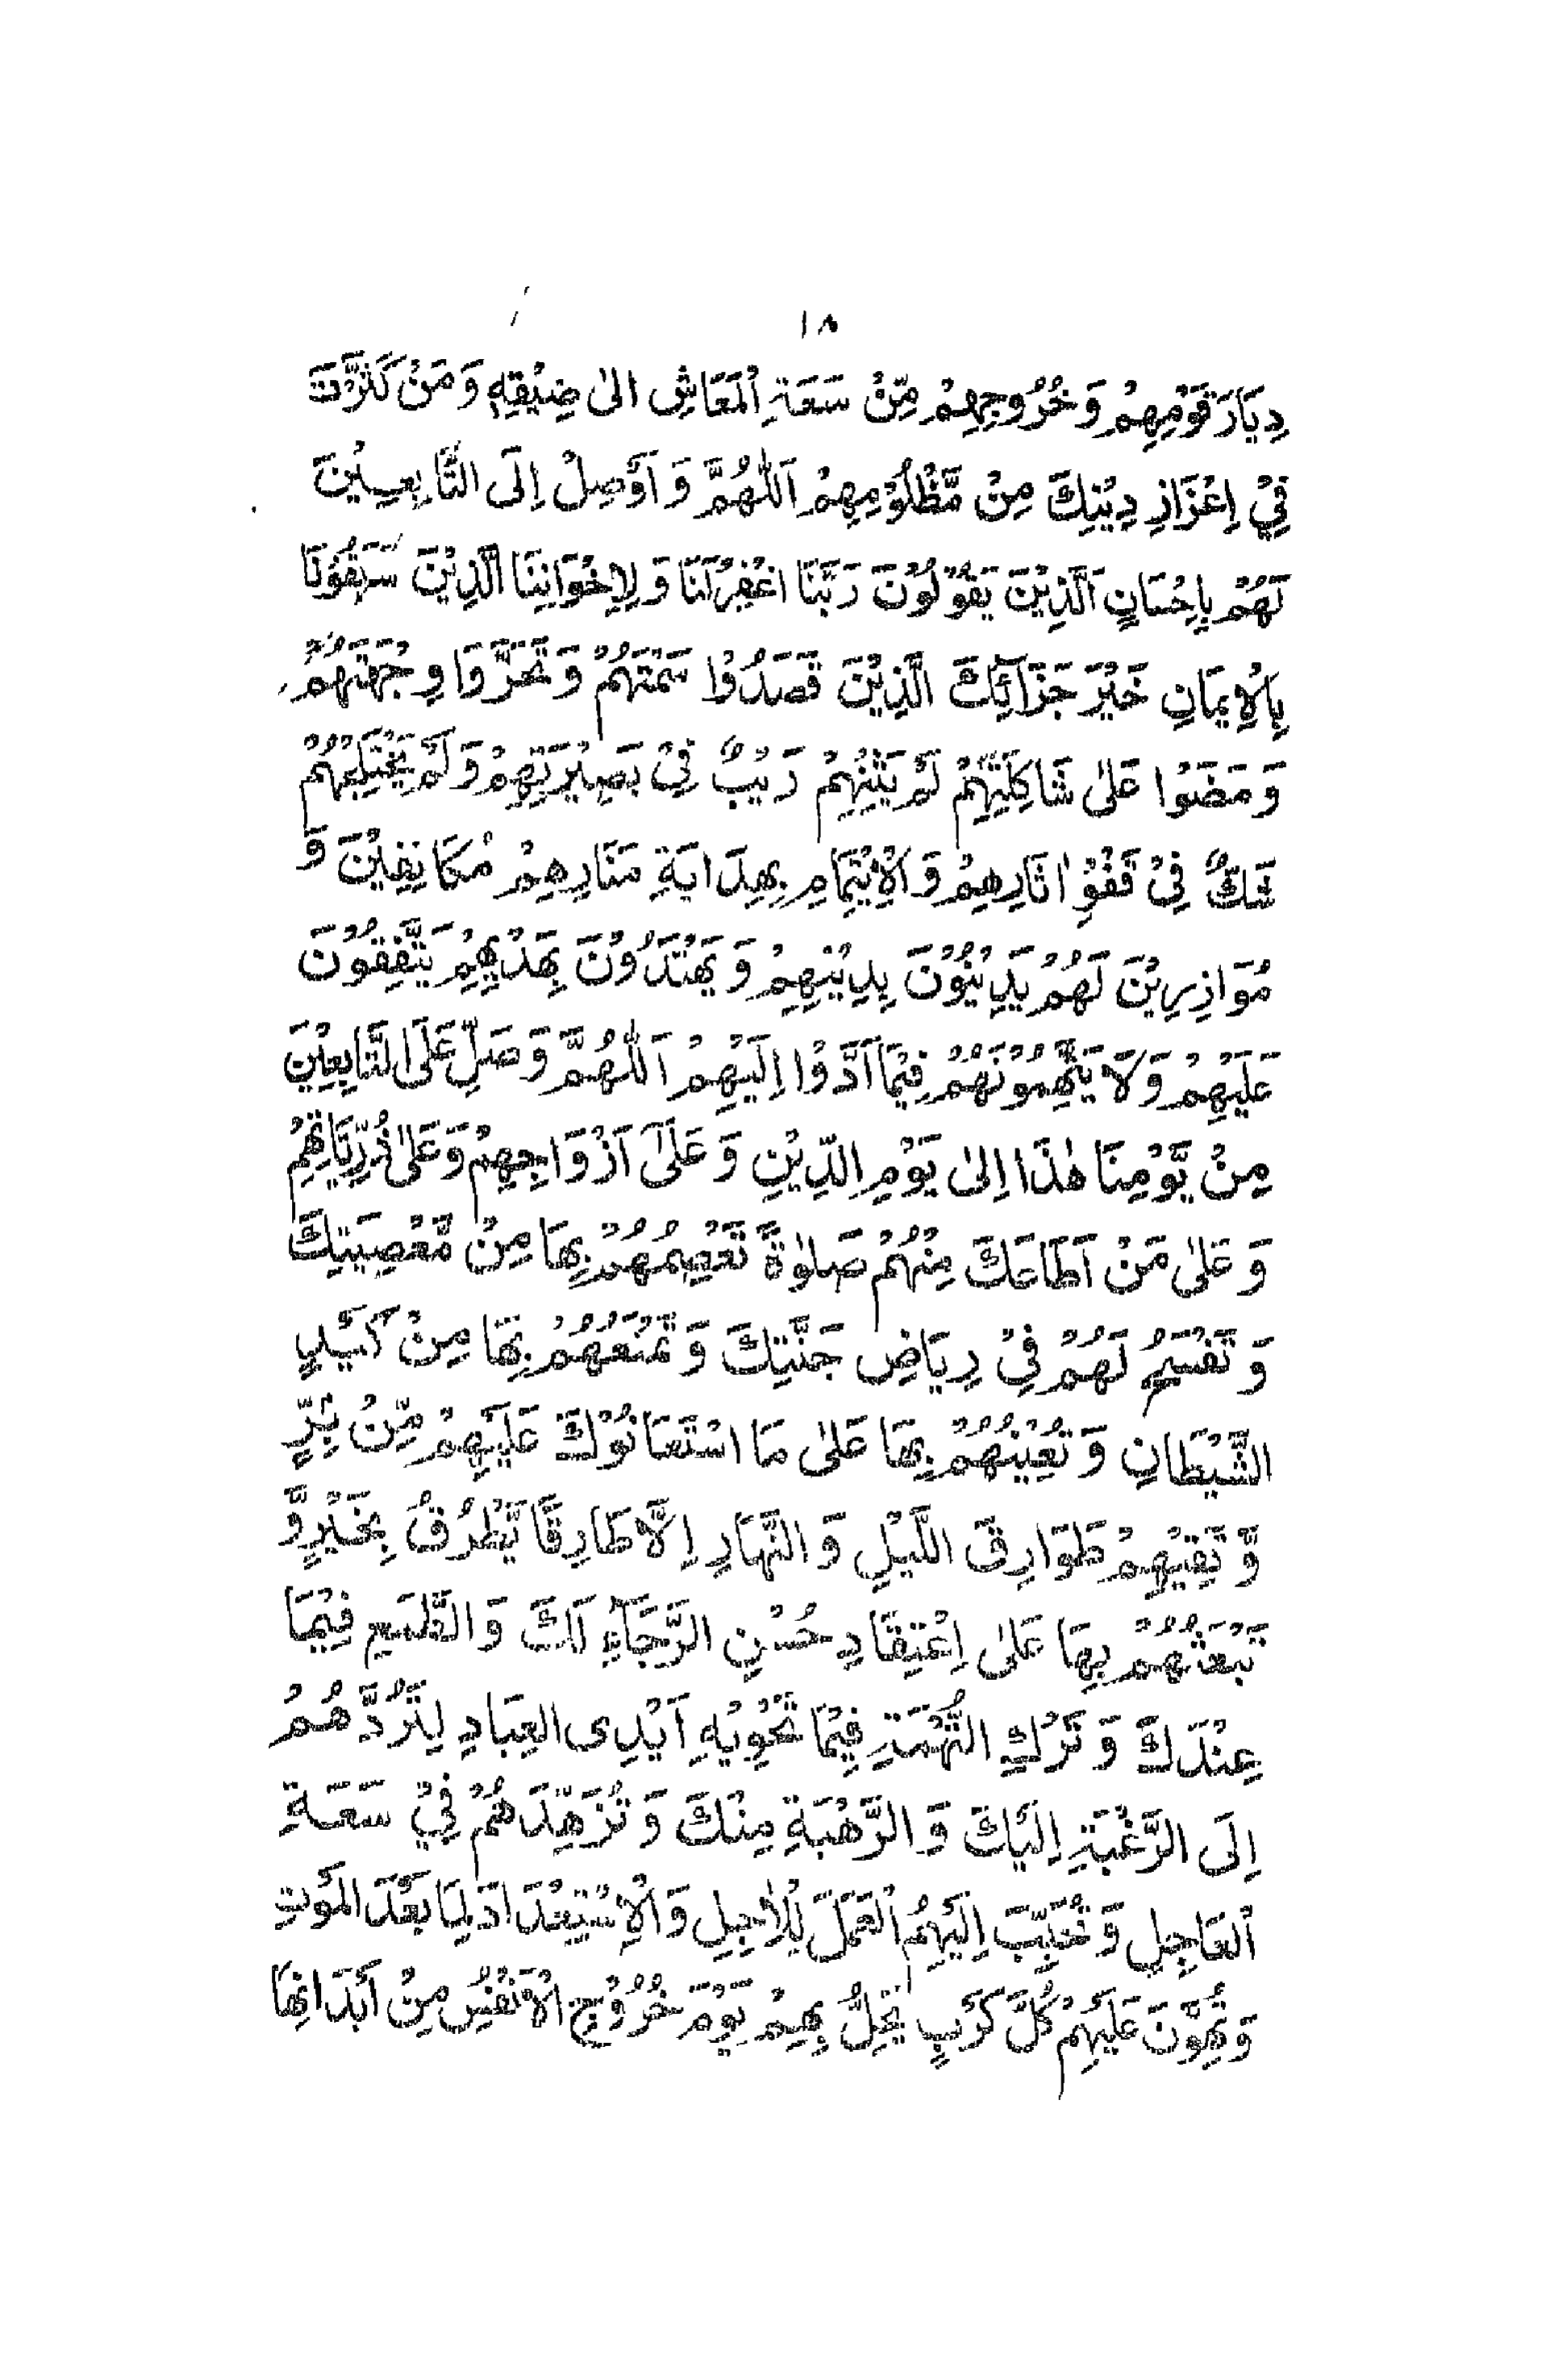 ١٨
دِيَارَ قَوْمِهِمْ وَخُرُوجِهِمْ مِّنْ سَعَةِ الْمَعَاشِ الىٰ ضِيْقِهٖ وَمَنْ كَثَّرْتَ
فِيْ اِعْزَازِ دِيْنِكَ مِنْ مَّظْلُوْمِهِمْ اَللّٰهُمَّ وَ اَوْصِلْ اِلَى التَّابِعِيْنَ
لَهُمْ بِاِحْسَانٍ اَلَّذِيْنَ يَقُوْلُوْنَ رَبَّنَا اغْفِرْلَنَا وَ لِاِخْوَانِنَا الَّذِيْنَ سَبَقُوْنَا
بِالْاِيْمَانِ خَيْرَ جَزَآئِكَ الَّذِيْنَ قَصَدُوْا سَمْتَهُمْ وَ تَحَرَّوْا وِجْهَتَهُمْ
وَ مَضَوْا عَلىٰ شَاكِلَتِهِمْ لَمْ يَثْنِهِمْ رَيْبٌ فِيْ بَصِيْرَتِهِمْ وَ لَمْ يَخْتَلِجْهُمْ
شَكٌّ فِيْ قَفْوِ اٰثَارِهِمْ وَ الْاِئْتِمَامِ بِهِدَايَةِ مَنَارِهِمْ مُكَانِفِيْنَ وَ
مُوَازِرِيْنَ لَهُمْ يَدِيْنُوْنَ بِدِيْنِهِمْ وَ يَهْتَدُوْنَ بِهَدْيِهِمْ يَتَّفِقُوْنَ
عَلَيْهِمْ وَلَا يَتَّهِمُوْنَهُمْ فِيْمَا اَدَّوْا اِلَيْهِمْ اَللّٰهُمَّ وَ صَلِّ عَلَى التَّابِعِيْنَ
مِنْ يَّوْمِنَا هٰذَا اِلىٰ يَوْمِ الدِّيْنِ وَ عَلَىٰ اَزْوَاجِهِمْ وَ عَلىٰ ذُرِّيَّاتِهِمْ
وَ عَلىٰ مَنْ اَطَاعَكَ مِنْهُمْ صَلوٰةً تَعْصِمُهُمْ بِهَا مِنْ مَّعْصِيَتِكَ
وَ تَفْسَحُ لَهُمْ فِيْ رِيَاضِ جَنَّتِكَ وَ تَمْنَعُهُمْ بِهَا مِنْ كَيْدِ
الشَّيْطَانِ وَ تُعِيْنُهُمْ بِهَا عَلىٰ مَا اسْتَعَانُوْكَ عَلَيْهِمْ مِّنْ بِرٍّ
وَّ تَقِيْهِمْ طَوَارِقَ اللَّيْلِ وَ النَّهَارِ اِلَّا طَارِقًا يَّطْرُقُ بِخَيْرٍ وَّ
تَبْعَثُهُمْ بِهَا عَلىٰ اِعْتِقَادِ حُسْنِ الرَّجَآءِ لَكَ وَ الطَّمَعِ فِيْمَا
عِنْدَكَ وَ تَرْكِ التُّهْمَةِ فِيْمَا تَحْوِيْهِ اَيْدِى العِبَادِ لِتَرُدَّهُمْ
اِلَى الرَّغْبَةِ اِلَيْكَ وَ الرَّهْبَةِ مِنْكَ وَ تُزَهِّدَهُمْ فِيْ سَعَةِ
الْعَاجِلِ وَ تُحَبِّبَ اِلَيْهِمُ الْعَمَلَ لِلْاٰجِلِ وَ الْاِسْتِعْدَادَ لِمَا بَعْدَ المَوْتِ
وَ تُهَوِّنَ عَلَيْهِمْ كُلَّ كَرْبٍ يَحِلُّ بِهِمْ يَوْمَ خُرُوْجِ الْاَنْفُسِ مِنْ اَبْدَانِهَا